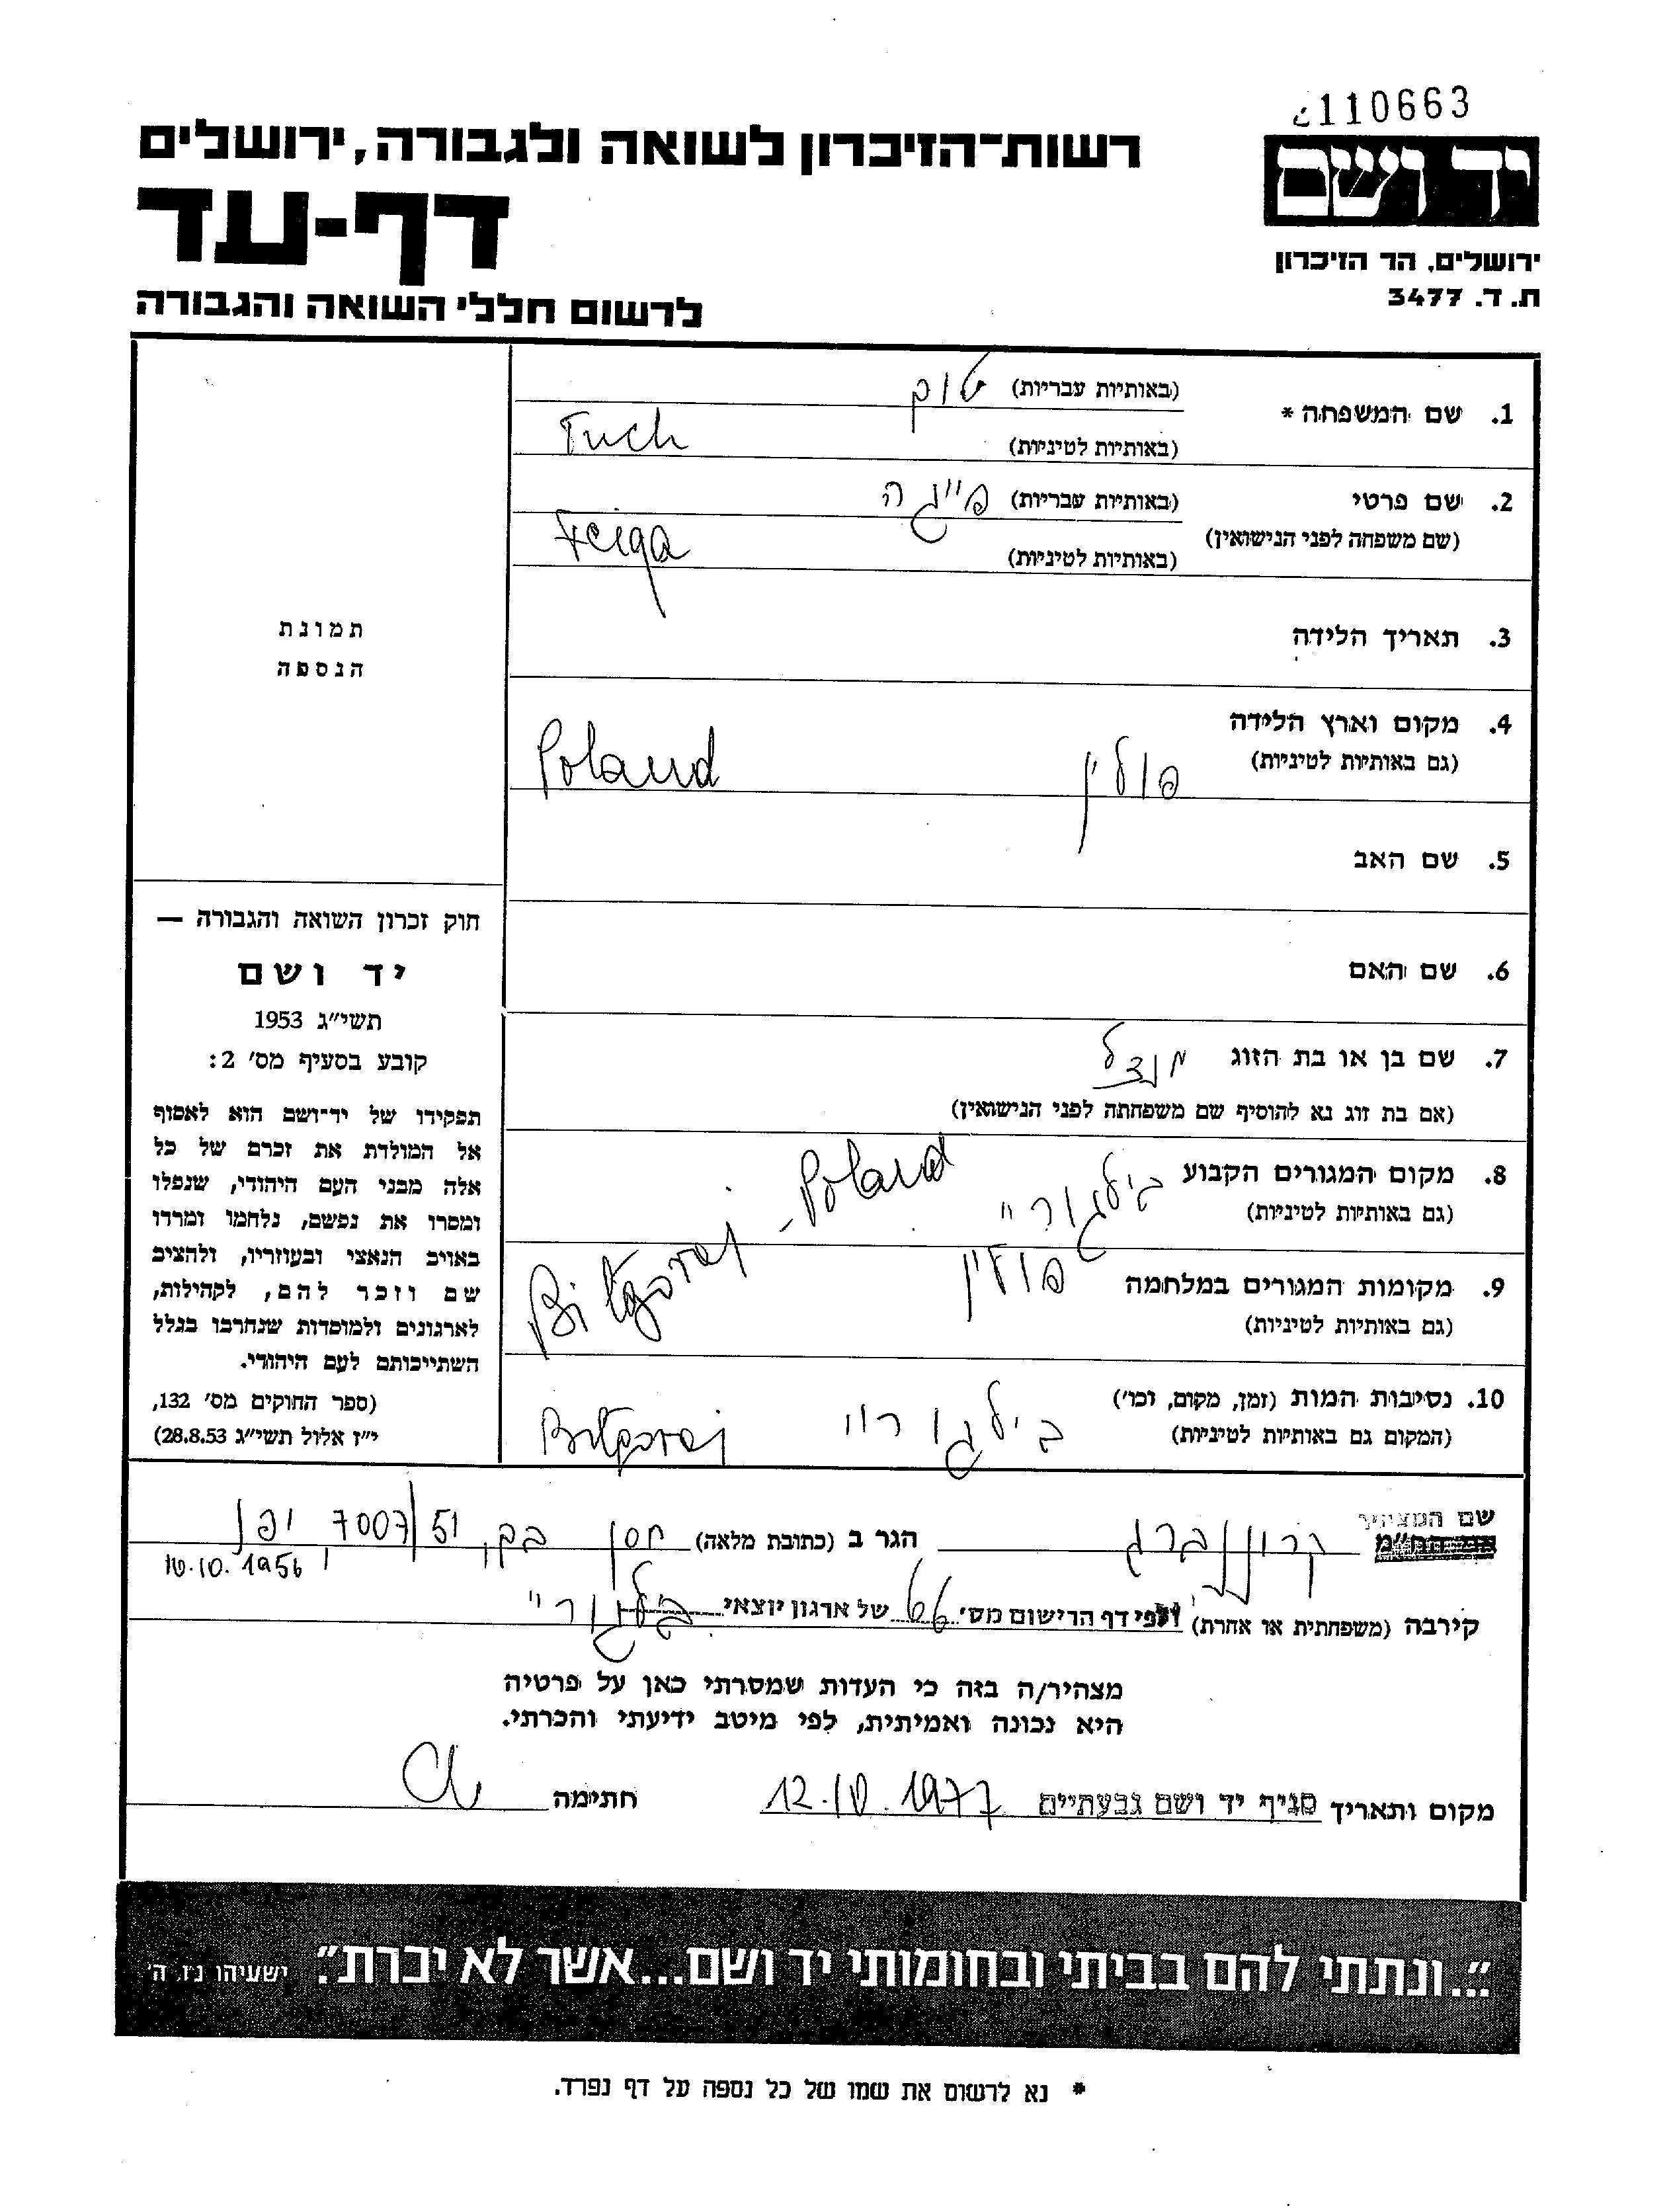 110663
רשות־הזיכרון לשואה ולגבורה, ירושלים
יד ושם
דף-עד
ירושלים, הר הזיכרון
ת. ד. 3477
לרשום חללי השואה והגבורה
1. שם המשפחה * (באותיות עבריות) טוך
(באותיות לטיניות) Tuch
2. שם פרטי (באותיות עבריות) פייגה
(שם משפחה לפני הנישואין) (באותיות לטיניות) Feiga
3. תאריך הלידה
תמונת
הנספה
4. מקום וארץ הלידה
(גם באותיות לטיניות) פולין Poland
5. שם האב
6. שם האם
7. שם בן או בת הזוג מנדל
(אם בת זוג נא להוסיף שם משפחתה לפני הנישואין)
8. מקום המגורים הקבוע בילגוריי
(גם באותיות לטיניות) Biłgoraj - Poland
9. מקומות המגורים במלחמה פולין
(גם באותיות לטיניות)
10. נסיבות המות (זמן, מקום, וכו׳)
(המקום גם באותיות לטיניות) בילגוריי Biłgoraj
חוק זכרון השואה והגבורה —
יד ושם
תשי״ג 1953
קובע בסעיף מס׳ 2:
תפקידו של יד־ושם הוא לאסוף
אל המולדת את זכרם של כל
אלה מבני העם היהודי, שנפלו
ומסרו את נפשם, נלחמו ומרדו
באויב הנאצי ובעוזריו, ולהציב
שם וזכר להם, לקהילות,
לארגונים ולמוסדות שנחרבו בגלל
השתייכותם לעם היהודי.
(ספר החוקים מס׳ 132,
י״ז אלול תשי״ג 28.8.53)
שם המצהיר קרוננברג הגר ב (כתובת מלאה) חסן בק, 7007/51 יפו
10.10.1956
קירבה (משפחתית או אחרת) ולפי דף הרישום מס׳ 66 של ארגון יוצאי בילגוריי
מצהיר/ה בזה כי העדות שמסרתי כאן על פרטיה
היא נכונה ואמיתית, לפי מיטב ידיעתי והכרתי.
מקום ותאריך סניף יד ושם גבעתיים 12.10.1977 חתימה
״...ונתתי להם בביתי ובחומותי יד ושם...אשר לא יכרת״. ישעיהו נו, ה׳
* נא לרשום את שמו של כל נספה על דף נפרד.